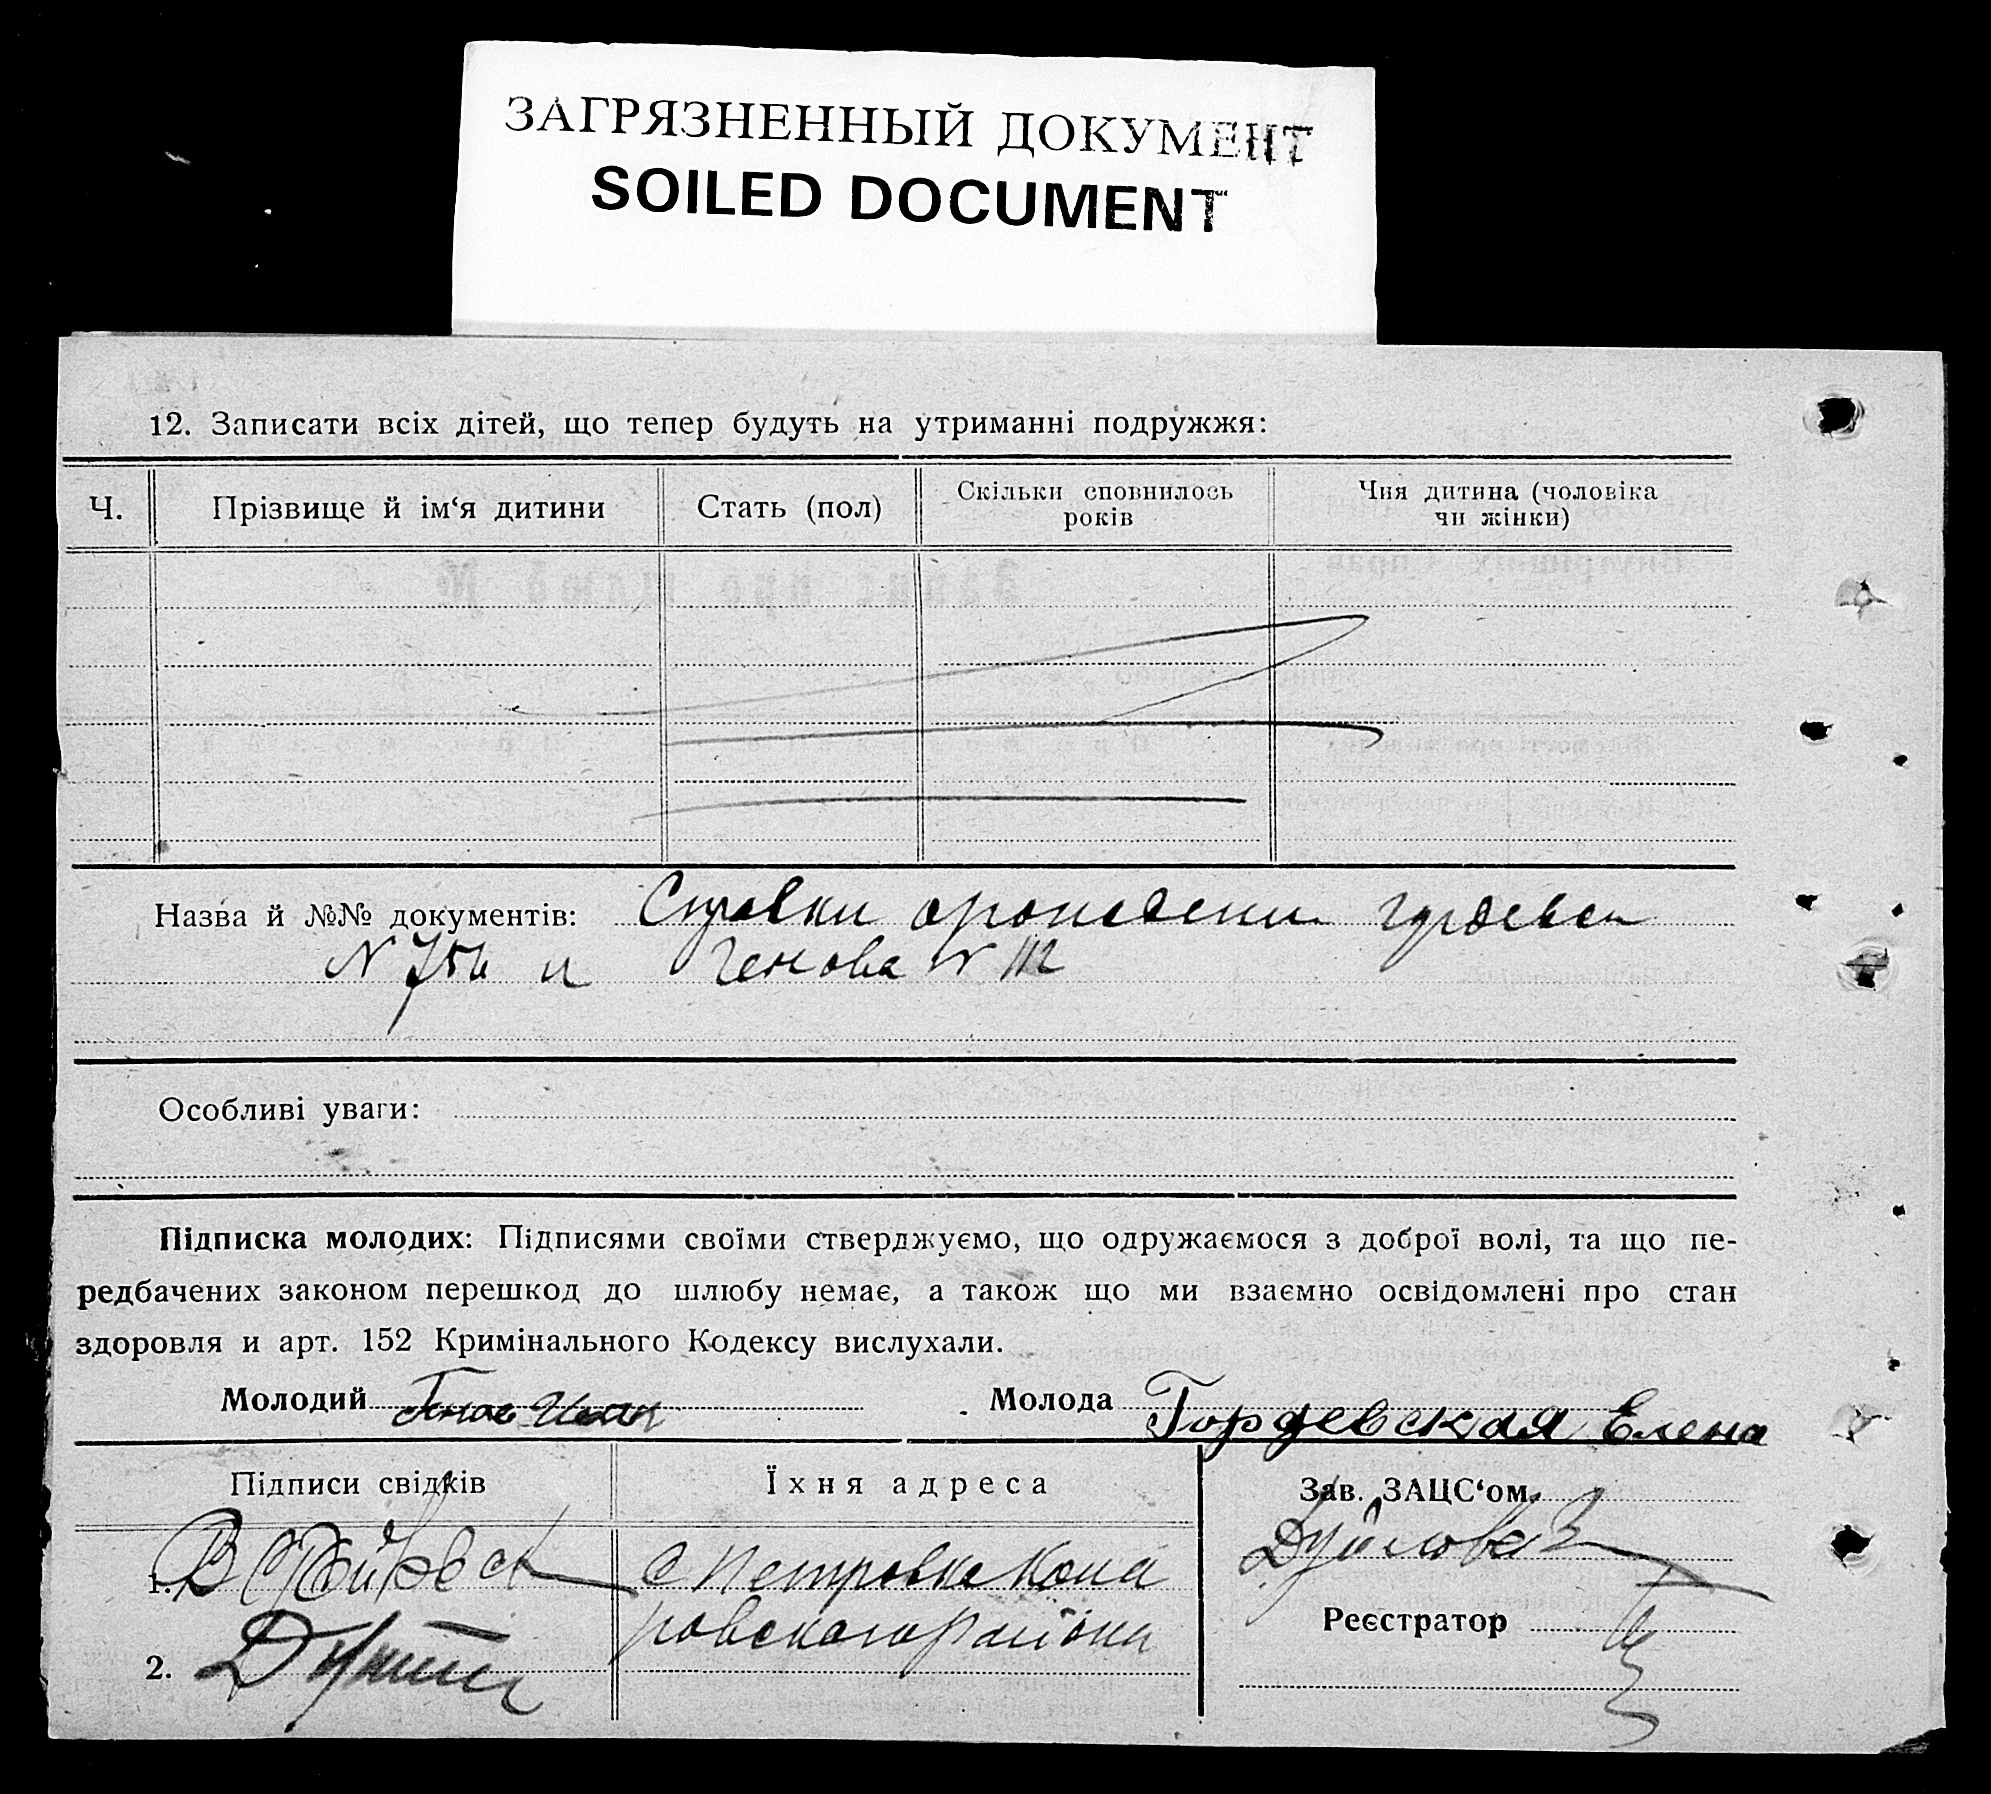 ЗАГРЯЗНЕННЫЙ ДОКУМЕНТ
SOILED DOCUMENT
12. Записати всіх дітей, що тепер будуть на утриманні подружжя:
Ч. Прізвище й ім‘я дитини Стать (пол) Скільки сповнилось років Чия дитина (чоловіка чи жінки)
Назва й №№ документів: Справки
N и Генова N 112
Особливі уваги:
Підписка молодих: Підписями своїми стверджуємо, що одружаємося з доброї волі, та що пе-
редбачених законом перешкод до шлюбу немає, а також що ми взаємно освідомлені про стан
здоровля и арт. 152 Кримінального Кодексу вислухали.
Молодий Молода Гордевская Елена
Підписи свідків Їхня адреса Зав. ЗАЦС‘ом
1. с Петровка Кома
ровского района
Реєстратор
2.